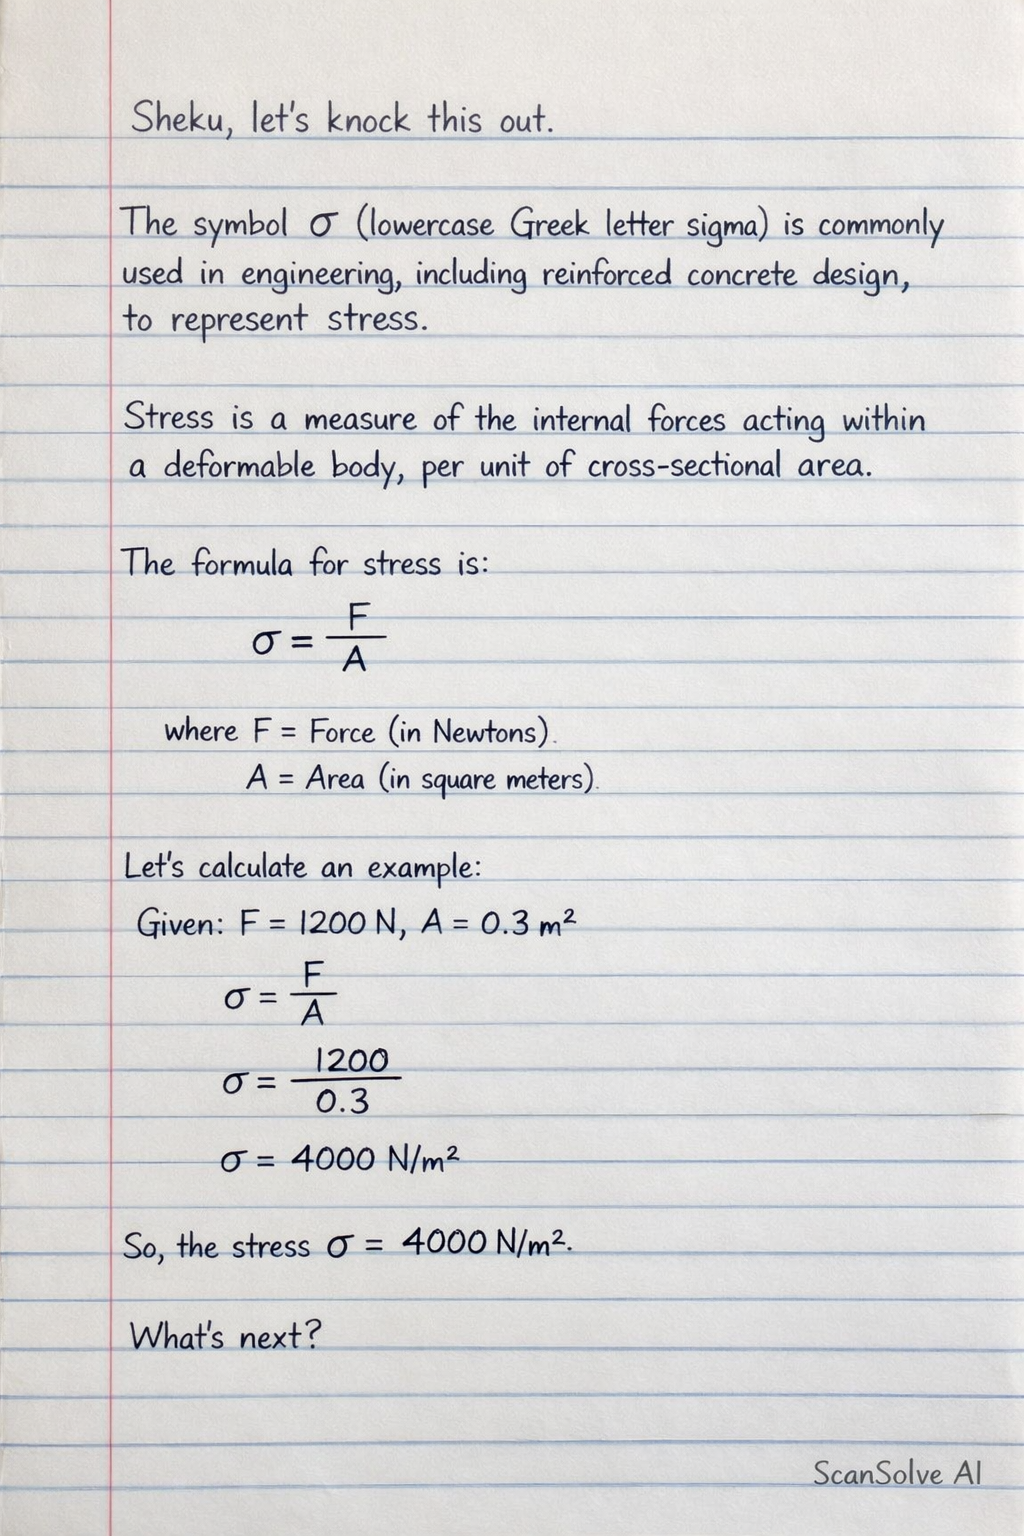 Sheku, let's knock this out.
The symbol σ (lowercase Greek letter sigma) is commonly
used in engineering, including reinforced concrete design,
to represent stress.
Stress is a measure of the internal forces acting within
a deformable body, per unit of cross-sectional area.
The formula for stress is:
σ = F / A
where F = Force (in Newtons).
A = Area (in square meters).
Let's calculate an example:
Given: F = 1200 N, A = 0.3 m²
σ = F / A
σ = 1200 / 0.3
σ = 4000 N/m²
So, the stress σ = 4000 N/m².
What's next?
ScanSolve AI